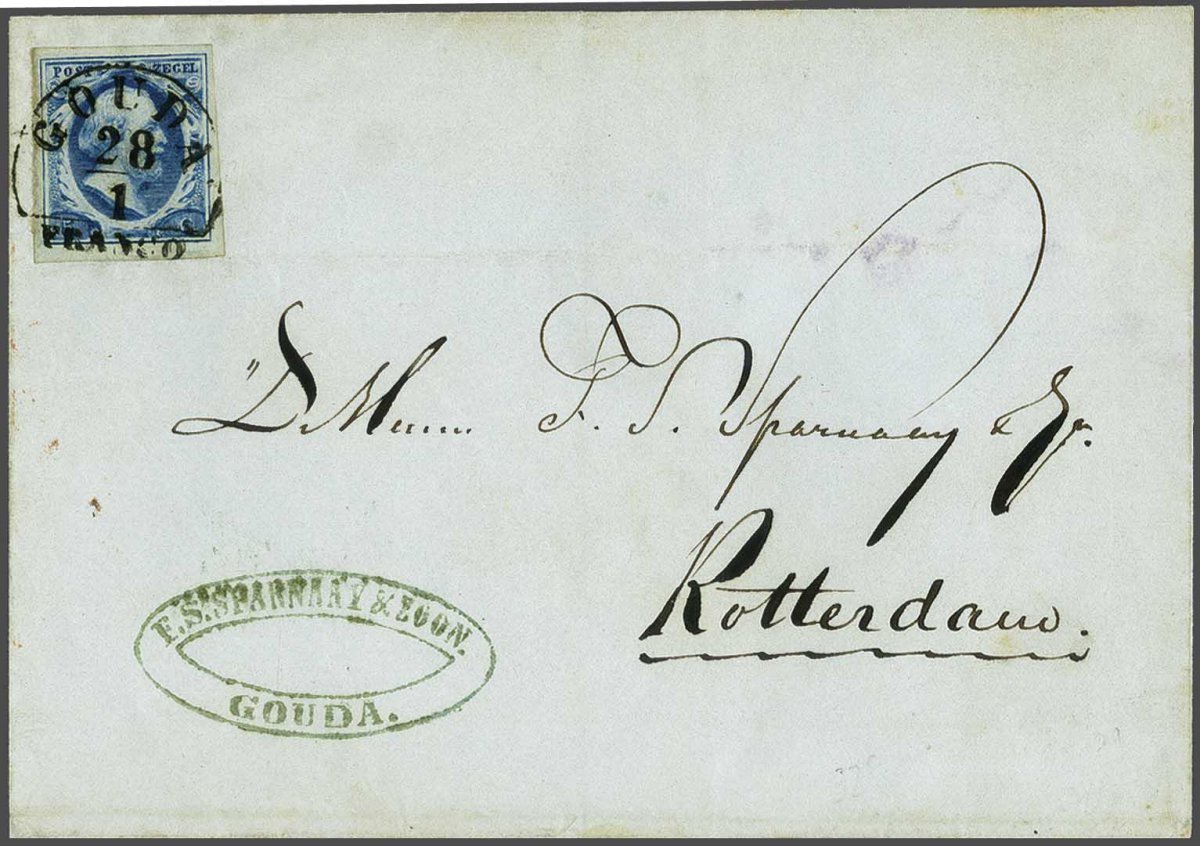 POST ZEGEL
GOUDA
28
1
FRANCO
F. S. Sparnaay & Zn.
Rotterdam.
F. S. SPARNAAY & ZOON.
GOUDA.